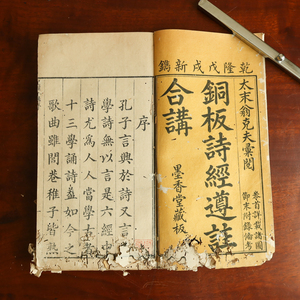 乾隆戊戌新鐫
太末翁克夫彙閱
銅板詩經遵註
合講
墨香堂藏板
卷首詳載講圖
鄭末附錄備考
序
孔子言興於詩又言
學詩無以言是六經中
詩尤為人人當學古者
十三學誦詩蓋如今之
歌曲雖閭巷稚子皆熟